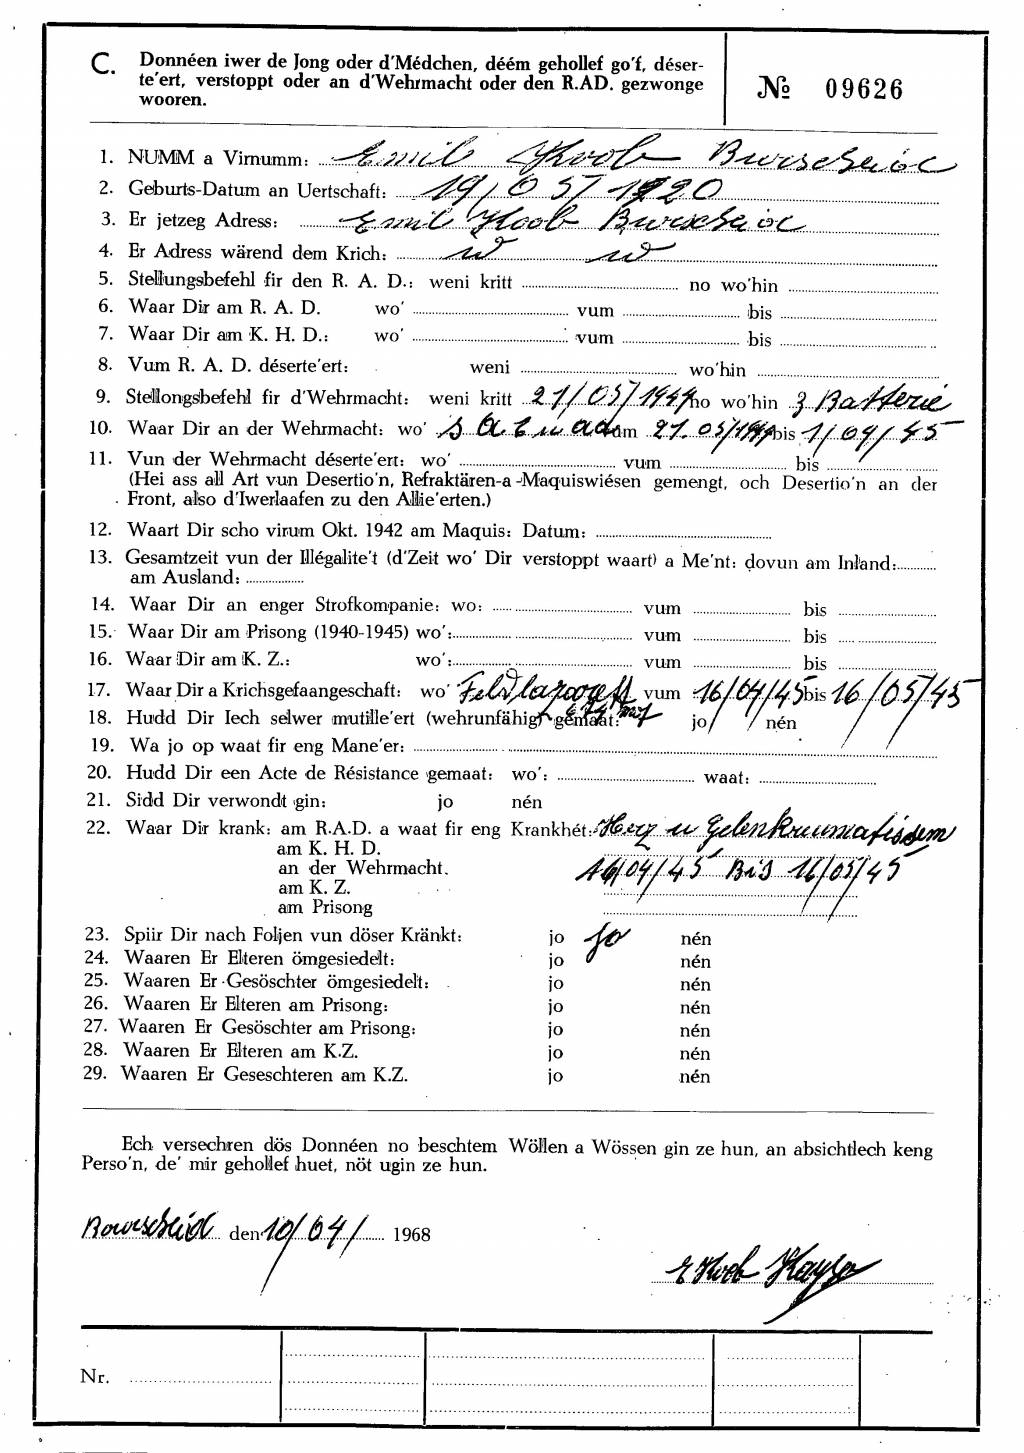 C. Donnéen iwer de Jong oder d'Médchen, déém gehollef go'f, déser-
te'ert, verstoppt oder an d'Wehrmacht oder den R.AD. gezwonge
wooren.
№ 09626
1. NUMM a Virnumm: Emil Koob Burscheid
2. Geburts-Datum an Uertschaft: 19/05/1920
3. Er jetzeg Adress: Emil Koob Burscheid
4. Er Adress wärend dem Krich:
5. Stellungsbefehl fir den R. A. D.: weni kritt no wo'hin
6. Waar Dir am R. A. D. wo' vum bis
7. Waar Dir am K. H. D.: wo' vum bis
8. Vum R. A. D. déserte'ert: weni wo'hin
9. Stellongsbefehl fir d'Wehrmacht: weni kritt 21/05/1944 no wo'hin 3 Batterie
10. Waar Dir an der Wehrmacht: wo' vum 21.05/1944 bis 1/04/45
11. Vun der Wehrmacht déserte'ert: wo' vum bis
(Hei ass all Art vun Desertio'n, Refraktären-a-Maquiswiésen gemengt, och Desertio'n an der
Front, also d'Iwerlaafen zu den Allie'erten.)
12. Waart Dir scho virum Okt. 1942 am Maquis: Datum:
13. Gesamtzeit vun der Illégalite't (d'Zeit wo' Dir verstoppt waart) a Me'nt: dovun am Inland:
am Ausland:
14. Waar Dir an enger Strofkompanie: wo: vum bis
15. Waar Dir am Prisong (1940-1945) wo': vum bis
16. Waar Dir am K. Z.: wo': vum bis
17. Waar Dir a Krichsgefaangeschaft: wo' Feldlazarett vum 16/04/45 bis 16/05/45
18. Hudd Dir Iech selwer mutille'ert (wehrunfähig) gemaat: jo / nén
19. Wa jo op waat fir eng Mane'er:
20. Hudd Dir een Acte de Résistance gemaat: wo': waat:
21. Sidd Dir verwondt gin: jo nén
22. Waar Dir krank: am R.A.D. a waat fir eng Krankhét: Herz u Gelenkreumatissem
am K. H. D.
an der Wehrmacht. 16/04/45 Bis 16/05/45
am K. Z.
am Prisong
23. Spiir Dir nach Foljen vun döser Kränkt: jo jo nén
24. Waaren Er Elteren ömgesiedelt: jo nén
25. Waaren Er Gesöschter ömgesiedelt: jo nén
26. Waaren Er Elteren am Prisong: jo nén
27. Waaren Er Gesöschter am Prisong: jo nén
28. Waaren Er Elteren am K.Z. jo nén
29. Waaren Er Geseschteren am K.Z. jo nén
Ech versechren dös Donnéen no beschtem Wöllen a Wössen gin ze hun, an absichtlech keng
Perso'n, de' mir gehollef huet, nöt ugin ze hun.
Bourscheid den 10/04/ 1968
E Koob Kayser
Nr.